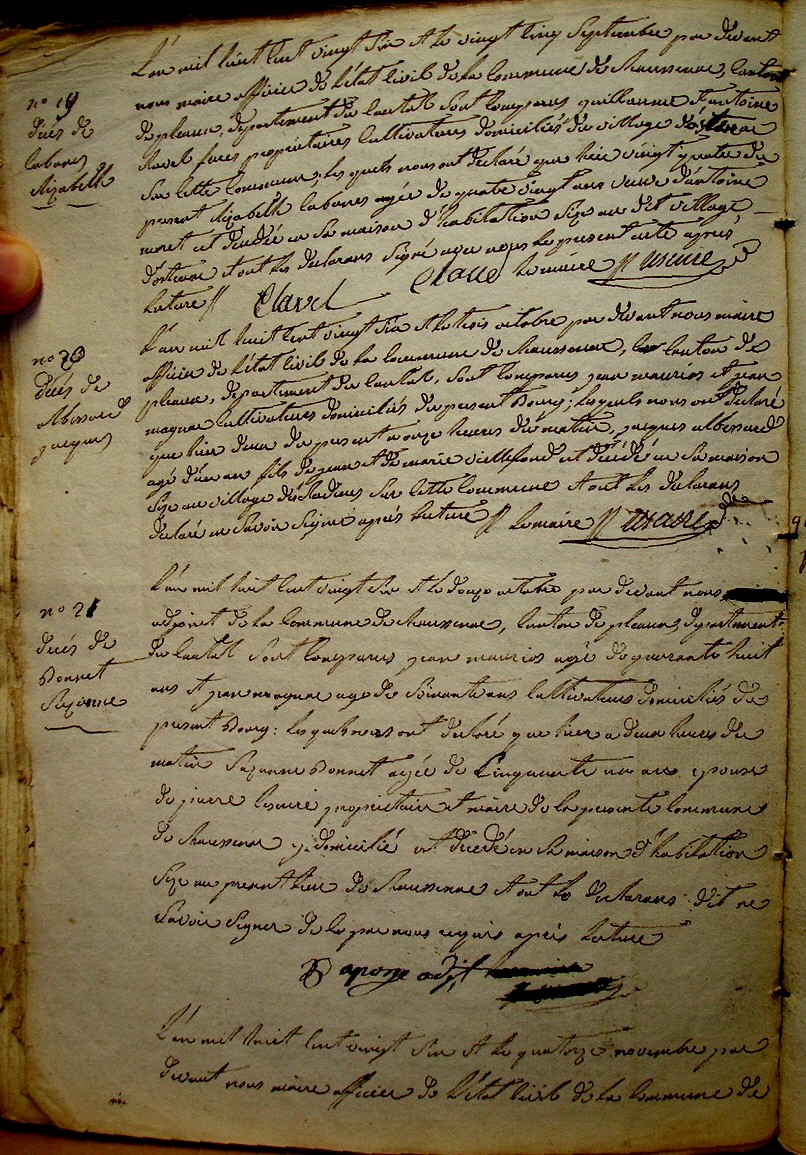 n° 19
décés de
labares
Elizabeth
L'an mil huit cent vingt six et le vingt cinq Septembre par devant
nous maire officier de l'état civil de la Commune de Chaussenac, Canton
de pleaux, departement du Cantal sont comparus guillaume et antoine
Clavel freres propriétaires Cultivateurs domiciliés du village
sur cette Commune, les quels nous ont déclaré que hier vingt quatre du
present Elizabeth labares agée de quatre vingt ans veuve d'antoine
moret est décédée en sa maison d'habitation size au dit village
et ont les declarans Signé avec nous le present acte après
lecture // Clavel Clavel le maire //
n° 20
décés de
albessard
jacques
L'an mil huit cent vingt six et le trois octobre par devant nous maire
officier de l'état civil de la Commune de Chaussenac, canton de
pleaux, departement du Cantal, sont comparus jean maurios et jean
magnac cultivateurs domiciliés du present Bourg; les quels nous ont declaré
que hier deux du present a onze heures du matin, jacques albessard
agé d'un an fils de jean et de marie vieillefond est décédé en sa maison
size au village d'escladines sur cette Commune et ont les declarans
declaré ne Savoir Signer après lecture // le maire //
n° 21
décés de
Bonnet
Suzanne
L'an mil huit cent vingt six et le douze octobre par devant nous
adjoint de la Commune de Chaussenac, Canton de pleaux, departement
du Cantal sont comparus jean maurios agé de quarante huit
ans et jean magnac agé de Soixante ans Cultivateurs domiciliés du
present Bourg: les quels nous ont declaré que hier a deux heures du
matin Suzanne Bonnet agée de Cinquante un ans epouse
de pierre lescure propriétaire et maire de la presente Commune
de Chaussenac y domicilié est décédé en sa maison d'habitation
size au present lieu de Chaussenac et ont les declarans dit ne
Savoir Signer de ce par nous requis après lecture
adjt
L'an mil huit cent vingt six et le quatorze novembre par
devant nous maire officier de l'état civil de la Commune de